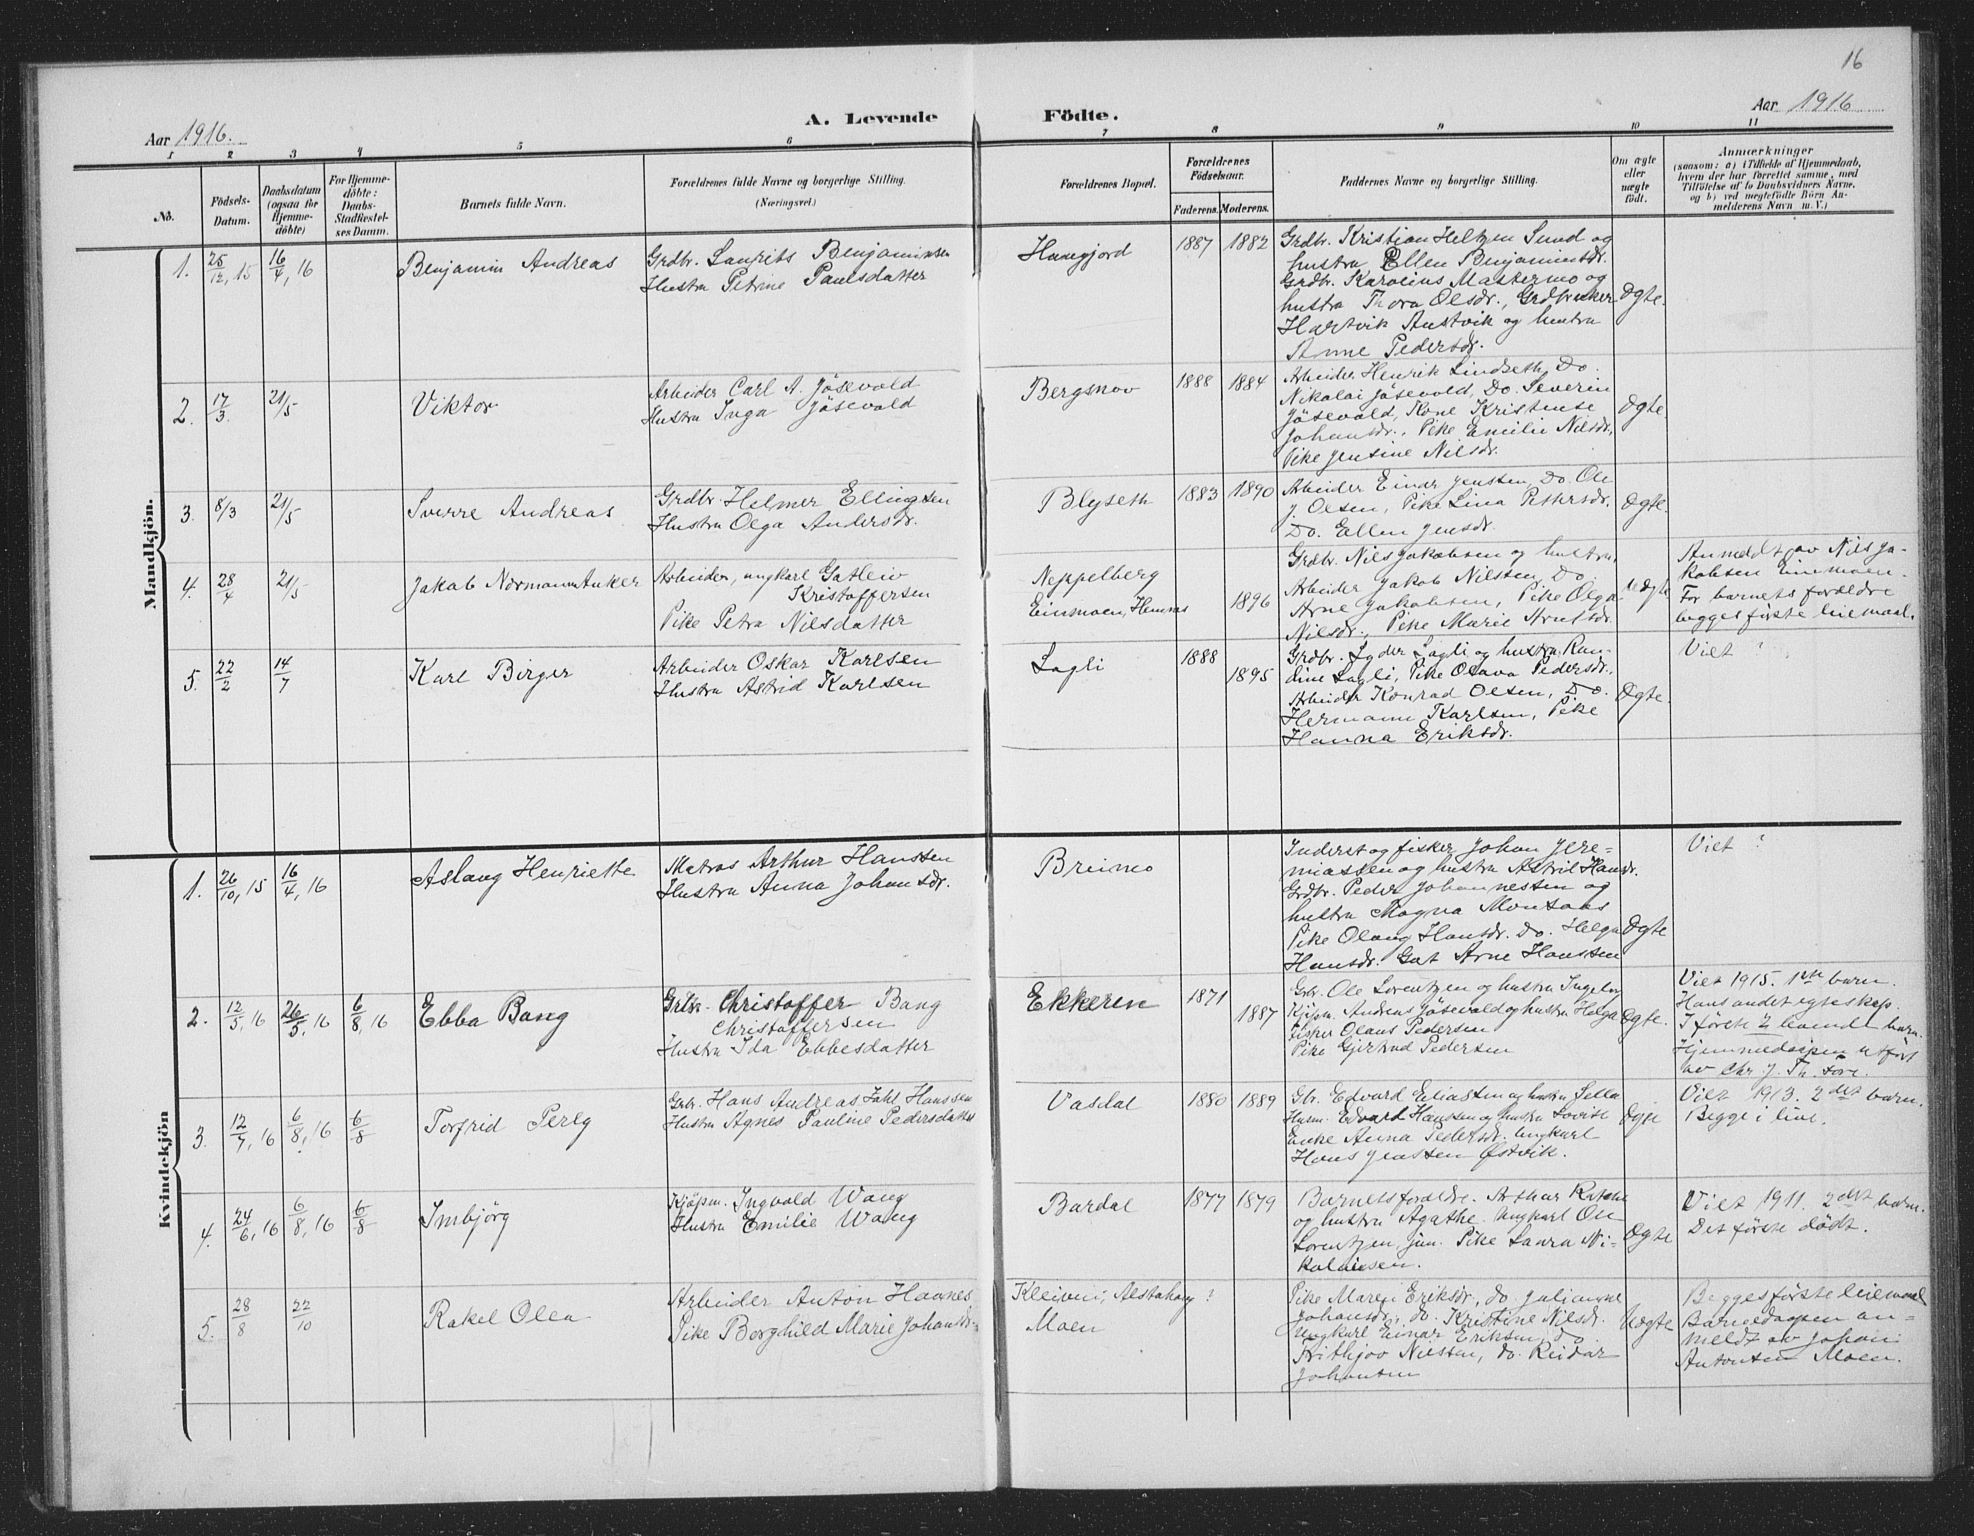 16
A. Levende Födte.
Aar 1916.
Aar 1916
1 2 3 4 5 6 7 8 9 10 11
No.
Födsels-
Datum.
Daabsdatum
(ogsaa for
Hjemme-
döbte)
For Hjemme-
döbte:
Daabs-
Stadfæstel-
ses Datum.
Barnets fulde Navn.
Forældrenes fulde Navne og borgerlige Stilling.
(Næringsvei.)
Forældrenes Bopæl.
Forældrenes
Födselsaar.
Faderens. Moderens.
Faddernes Navne og borgerlige Stilling.
Om ægte
eller
uægte
födt.
Anmærkninger
(saasom: a) i Tilfælde af Hjemmedaab,
hvem der har forrettet samme, med
Tilföielse af to Daabsvidners Navne,
og b) ved uægtefödte Börn An-
melderens Navn m. V.)
Mandkjön.
1. 25/12, 15 16/4, 16
Benjamin Andreas
Grdbr. Laurits Benjaminsen
Hustru Petrine Paulsdatter
1887 1882
Grdbr. Kristian Heltzen Sund og
hustru Ellen Benjaminsdr.
Grdbr. Karolius Mastermo og
hustru Thora Olsdr., Grdbruker
Hartvik Austvik og hustru
Anne Pedersdr.
Ægte.
2. 17/3. 21/5
Viktor
Arbeider Carl A. Jösevold
Hustru Inga Jösevold
Bergsnov
1888 1884
Arbeider Henrik Lindseth, Do.
Nikolai Jösevold, Do. Severin
Jösevold, Kone Kristense
Johansdr., Pike Emilie Nilsdr.,
Pike Jensine Nilsdr.
Ægte
3. 8/3 21/5
Sverre Andreas
Grdbr. Helmer Ellingsen
Hustru Olga Andersdr.
Blejseth
1883 1890
Arbeider Einar Jensen, Do. Ole
J. Olsen, Pike Lina Pettersdr.
Do. Ellen Jensdr.
Ægte.
4. 28/4 21/5
Jakob Normann Anker
Arbeider, ungkarl Gatleiv
Kristoffersen
Pike Petra Nilsdatter
Neppelberg
Einmoen, Hemnes
1896
Grdbr. Nils Jakobsen og hustru,
Arbeider Jakob Nilssen, Do.
Arne Jakobsen, Pike Olga
Nilsdr., Pike Marie Arntsdr.
Uægte
Anmeldt av Nils Ja-
kobsen Einmoen.
For barnets forældre
begges förste leiemaal.
5. 22/2 14/7
Karl Birger
Arbeider Oskar Karlsen
Hustru Astrid Karlsen
Lagli
1888
1895
Grdbr. Lyder Lagli og hustru Ran-
dine Lagli, Pike Olava Pedersdr.,
Arbeider Konrad Olsen, Do.
Hermann Karlsen, Pike
Hanna Eriksdr.
Ægte.
Viet ?
Kvindekjön
1. 26/10, 15 16/4, 16
Aslaug Henriette
Matros Arthur Hanssen
Hustru Anna Johansdr.
Breimo
Inderst og fisker Johan Jere-
miassen og hustru Astrid Hansdr.
Grdbr. Peder Johannessen og
hustru Magna Monsaas
Pike Olaug Hansdr. Do. Helga
Hansdr. Gut Arne Hanssen
Ægte
Viet ?
2. 12/5, 16 26/5, 16 6/8, 16
Ebba Bang
Grbr. Christoffer Bang
Christoffersen
Hustru Ida Ebbesdatter
Ekkeren
1871
1887
Grbr. Ole Lorentzen og hustru Ingeborg
Kjöpm. Andreas Jösevold og hustru Helga
Fisker Olaus Pedersen
Pike Gjertrud Pedersen
Ægte.
Viet 1915. 1ste barn.
Hans andet egteskap.
I förste 2 levende barn.
Hjemmedaapen utfört
av Chr. J. Th. Tore.
3. 12/7, 16 6/8, 16 6/8
Torfrid Perly
Grbr. Hans Andreas Jahl Hanssen
Hustru Agnes Pauline Pedersdatter
Vasdal
1880 1889
Gbr. Edvard Eliassen og hustru Sella
Husm. Edvard Hanssen og hustru Lovise
Enke Anna Pedersdr. Ungkarl
Hans Jenssen Østvik.
Ægte
Viet 1913. 2det barn.
Begge i live.
4. 24/6, 16 6/8, 16 6/8
Imbjörg
Kjöpm. Ingvald Wang
Hustru Emilie Wang
Bardal
1877 1879
Barnets forældre. Arthur
og hustru Agathe. Ungkarl Ole
Lorentzen, jun. Pike Laura Ni-
kolaisen.
Ægte
Viet 1911. 2det barn.
Det förste dödt.
5. 28/8 22/10
Rakel Olea
Arbeider Anton Hannes
Pike Borghild Marie Johansdr.
Kleiven, Alstahaug ?
Moen
Pike Maren Eriksdr., do. Julianne
Johansdr., do. Kristine Nilsdr.
Ungkarl Einar Eriksen, do.
Frithjov Nilssen, do. Reidar
Johansen
Uægte
Begges förste leiemaal
Barnedaapen an-
meldt av Johan
Antonsen Moen.